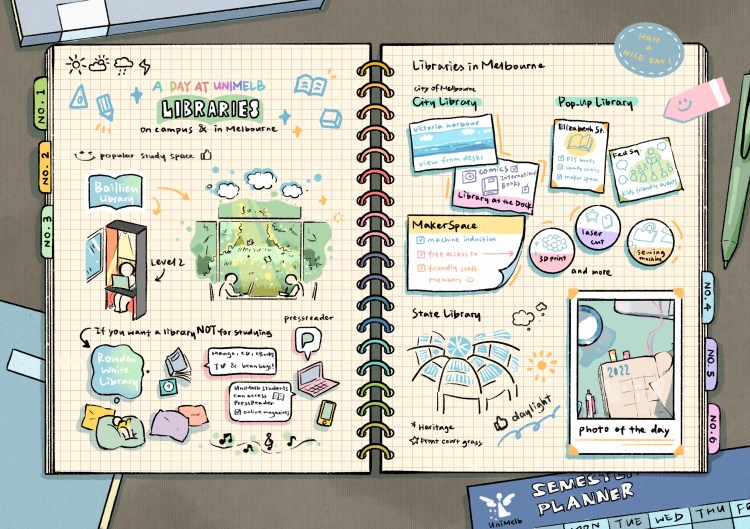 NO. 1
NO. 2
NO. 3
A DAY AT UNIMELB
LIBRARIES
on campus & in Melbourne
popular study space
Baillieu
Library
Level 2
If you want a library NOT for studying
Rowden
White
Library
manga, CD, eBooks
TV & beanbags!
pressreader
P
UniMelb students
can access
PressReader
online magazines
Libraries in Melbourne
HAVE
A
NICE DAY!
city of Melbourne
City Library
victoria harbour
view from desks
COMICS
International
Books
Library at the Dock
Pop-Up Library
Elizabeth St.
DIY books
comic
maker space
Fed Sq.
kids friendly events
MakerSpace
machine induction
free access to
friendly staff
members
3D print
laser
cut
sewing
machine
and more
State Library
daylight
* Heritage
☆ Front court grass
2022
photo of the day
NO. 4
NO. 5
NO. 6
UniMelb
SEMESTER
PLANNER
MON TUE WED THU F